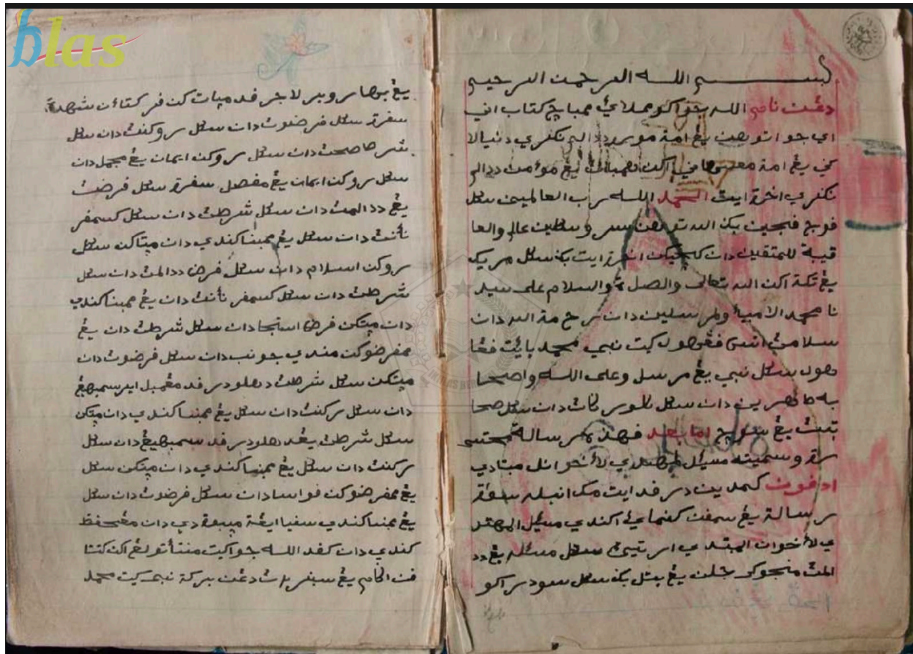 blas
بسم الله الرحمن الرحيم
دڠن نام الله جوا اكو ممولاءي ممباچ كتاب اني
اي جوا توهن يڠ امة موره ددالم نڬري دنيا لا
ڬي يڠ امة مڠسهاني اكن همباڽ يڠ مؤمن ددالم
نڬري اخرة ايت الحمد الله رب العالمين سڬل
فوج فوجين بڬ الله توهن سرو سكلين عالم والعا
قبة للمتقين دان كبجيكن اخرة ايت بڬ سڬل مريك
يڠ تاكة اكن الله تعالى والصلوة والسلام على سيد
نا محمد الانبياء والمرسلين دان رحمة الله دان
سلامڽ اتس ڤڠهولو كيت نبي محمد يايت ڤڠا
هولو سڬل نبي يڠ مرسل وعلى اله واصحا
به طاهرين دان سڬل كلورڬاڽ دان سڬل صحا
بتڽ يڠ سوچ اما بعد فهذه رسالة مختصـ
رة وسميته مسئل المهتدي لأخوان المبتدي
ادفون كمدين درفد ايت مك انيله سواة
رسالة يڠ سمڤن كنماءي اكندي مسئل المهتد
ي لأخوان المبتدي ارتيڽ سڬل مسئله يڠ دد
المڽ منجوكي جالن يڠ بتل بڬ سڬل سودراكو
يڠ بهارو بلاجر فد مڽتاكن فركتاءن شهدة
سفرة سڬل فرضوڽ دان سڬل روكنڽ دان سڬل
شرط صحڽ دان سڬل روكن ايمان يڠ مجمل دان
سڬل روكن ايمان يڠ مفصل سفرة سڬل فرضڽ
يڠ ددالمڽ دان سڬل شرطڽ دان سڬل كسمفر
ناءنڽ دان سڬل يڠ ممبيناساكندي دان مڽتاكن سڬل
روكن اسلام دان سڬل فرض ددالمڽ دان سڬل
شرطڽ دان سڬل كسمفرناءنڽ دان يڠ ممبيناساكندي
دان مڽتاكن فرض استنجا دان سڬل شرطڽ دان يڠ
ممفرضوكن مندي جنوب دان سڬل فرضوڽ دان
مڽتاكن سڬل شرطڽ دهولو درفد مڠمبل اير سمبهيڠ
دان سڬل ركنڽ دان سڬل يڠ ممبيناساكندي دان مڽتاكن
سڬل شرطڽ يڠ دهولو درفد سمبهيڠ دان سڬل
ركنڽ دان سڬل يڠ ممبيناساكندي دان مڽتاكن سڬل
يڠ ممفرضوكن فواسا دان سڬل فرضوڽ دان سڬل
يڠ ممبيناساكندي سفيا ايڠة مبتدي دان مڠحفظ
كندي دان كفد الله جوا كيت منتا تولڠ اكن كتتا
فن اڬام يڠ سبنر دڠن بركة نبي كيت محمد